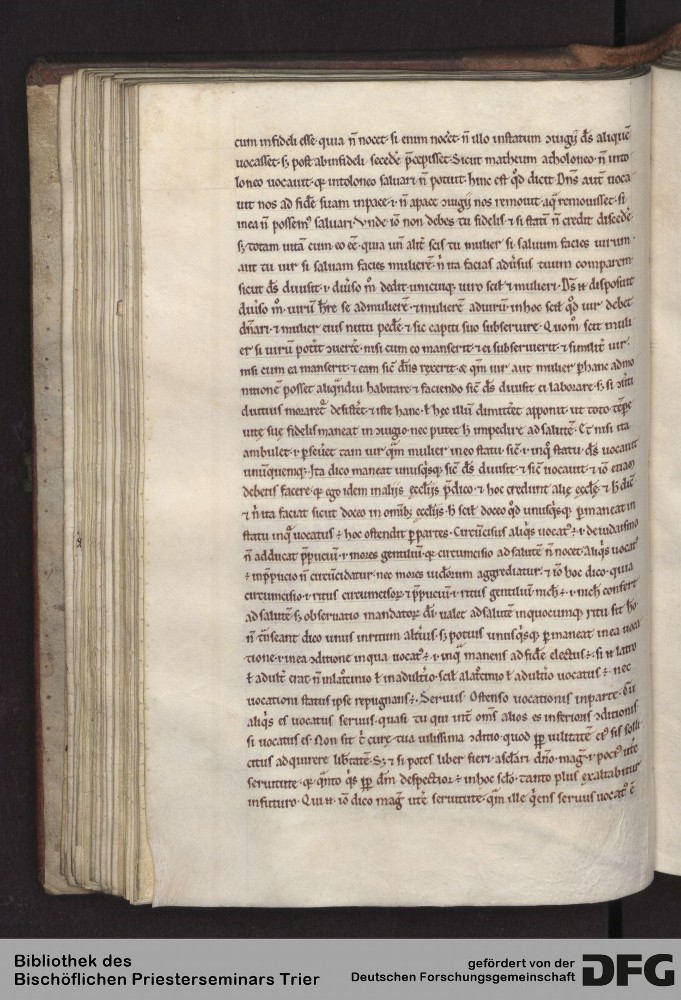 cum infideli esse · quia n̄ nocet · si enim nocet n̄ illo in statum ꝯiugij d̄s aliquē
uocasset · sꝫ post ab infideli secedē p̄cepisset · Sicut matheum a theloneo · n̄ in to
loneo uocauit · qꝛ in toloneo saluari n̄ potuit · hinc est qđ dicit · Dn̄s aut̄ uoca
uit nos ad fidē suam in pace · i · n̄ a pace ꝯiugij nos remouit · a q̄ remouisset · si
in ea n̄ possemꝰ saluari · Vnde iō non debes tu fidelis · ⁊ si statī n̄ credit discedē
sꝫ totam uitā cum eo eē · quia un̄ alit̄ scis tu mulier · si saluum facies uirum ·
aut tu uir si saluam facies mulierē · n̄ ita facias aduersus tuum comparem
sicut d̄s diuisit · i · diuiso m̄ dedit unicuiqꝫ uiro scil ⁊ mulieri · D̄s n̄ disposuit
diuiso m̄ · uirū h̄re se ad mulierē · ⁊ mulierē ad uirū · in hoc scil qđ uir debet
dn̄ari · ⁊ mulier eius nutu
er si uirū poterit ꝯuerte · nisi cum eo manserit · ⁊ ei subseruierit · ⁊ similit̄ uir ·
nisi cum ea manserit · ⁊ eam sic̄
nitionē posset aliqndiu habitare · ⁊ faciendo sic̄ d̄s diuisit ei laborare · sꝫ si
diutius moraret᷑ desist̄et · ⁊ iste hanc · ł hęc illū dimitt̄et apponit · ut toto tēpe
uitę suę fidelis maneat in ꝯiugio · nec putet h̄ impedire ad salutē · Et nisi ita
ambulet · i · pseuet tam uir qm̄ mulier in eo statu sic̄ · i · in q̊ statu d̄s uocauit
unūquemqꝫ · Ita dico maneat unusqsqꝫ sic̄ d̄s diuisit · ⁊ sic̄ uocauit · ⁊ iō etiam
debetis facere · qꝛ ego idem in alijs ęcclijs p̄dico · ⁊ hoc credunt alię ecclę
⁊ n̄ ita faciat sicut doceo in omībꝫ ęcclijs · h̄ scil doceo qđ unusqsqꝫ pmaneat in
statu in q̊ uocatus ÷ · hoc ostendit p partes · Circūcisus aliqs uocatꝰ ÷ · i · de iudaismo
n̄ adducat p̄puciū · i · mores gentiliū · qꝛ circumcisio ad salutē n̄ nocet · Aliqs uocatꝰ
÷ in p̄pucio n̄ circūcidatur · nec mores iudeorum aggrediatur · ⁊ iō hoc dico · quia
circumcisio · i · ritus circumcisoꝝ ⁊ p̄puciū · i · ritus gentiliū nich̄ ÷ · i · nich̄ confert
ad salutē · sꝫ obseruatio mandatoꝝ di ualet ad salutē in quocumqꝫ ritu sit ho ·
n̄ t̄n̄seant dico unus in ritum altius · sꝫ potius unusqsqꝫ pmaneat in ea uoca
tione · i · in ea ꝯditione in qua uocatꝰ ÷ · i · in q̊ manens ad fidē electus ÷ · si n̄ latro
ł adult̄ erat · n̄ in latcinio ł in adultio · scil a latcinio ł adultio uocatus ÷ · nec
uocationi status ipse repugnans ÷ · Seruus · Ostenso uocationis in parte ·
aliqs es uocatus seruus · quasi tu qui int̄ oms alios es inferioris ꝯditionis
si uocatus es · Non sit t̄ curę tua uilissima ꝯditio · quod pp uilitatē eiꝰ sis solli
citus adquirere libtatē · Sꝫ ⁊ si potes liber fieri
seruitute · qꝛ qnto qs pp dm̄ despectior ÷ in hoc sclo · tanto plus exaltabitur
in futuro · Qui n̄ · iō dico mag̊ ut̄e seruitute · qm̄ ille q̄ens seruus uocatꝰ ē
Bibliothek des
Bischöflichen Priesterseminars Trier
gefördert von der
Deutschen Forschungsgemeinschaft
DFG